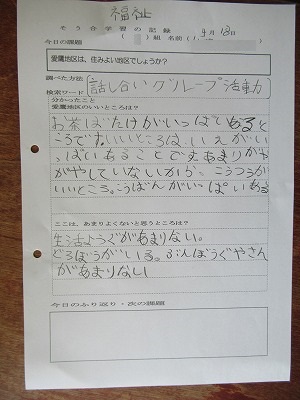 福祉
そう合学習の記録 4月18日
今日の課題 ( )組 名前(
愛鷹地区は、住みよい地区でしょうか?
調べた方法
検索ワード 話し合い グループ活動
分かったこと
愛鷹地区のいいところは?
お茶ばたけがいっぱいあると
ころです。いいところは、いえがい
っぱいあることですあまりがや
がやしていないから、こうつうが
いいところ。こうばんがいっぱいある
ここは、あまりよくないと思うところは?
生活ようぐがあまりない。
どろぼうがいる。ぶんぼうぐやさん
があまりない
今日のふり返り・次の課題